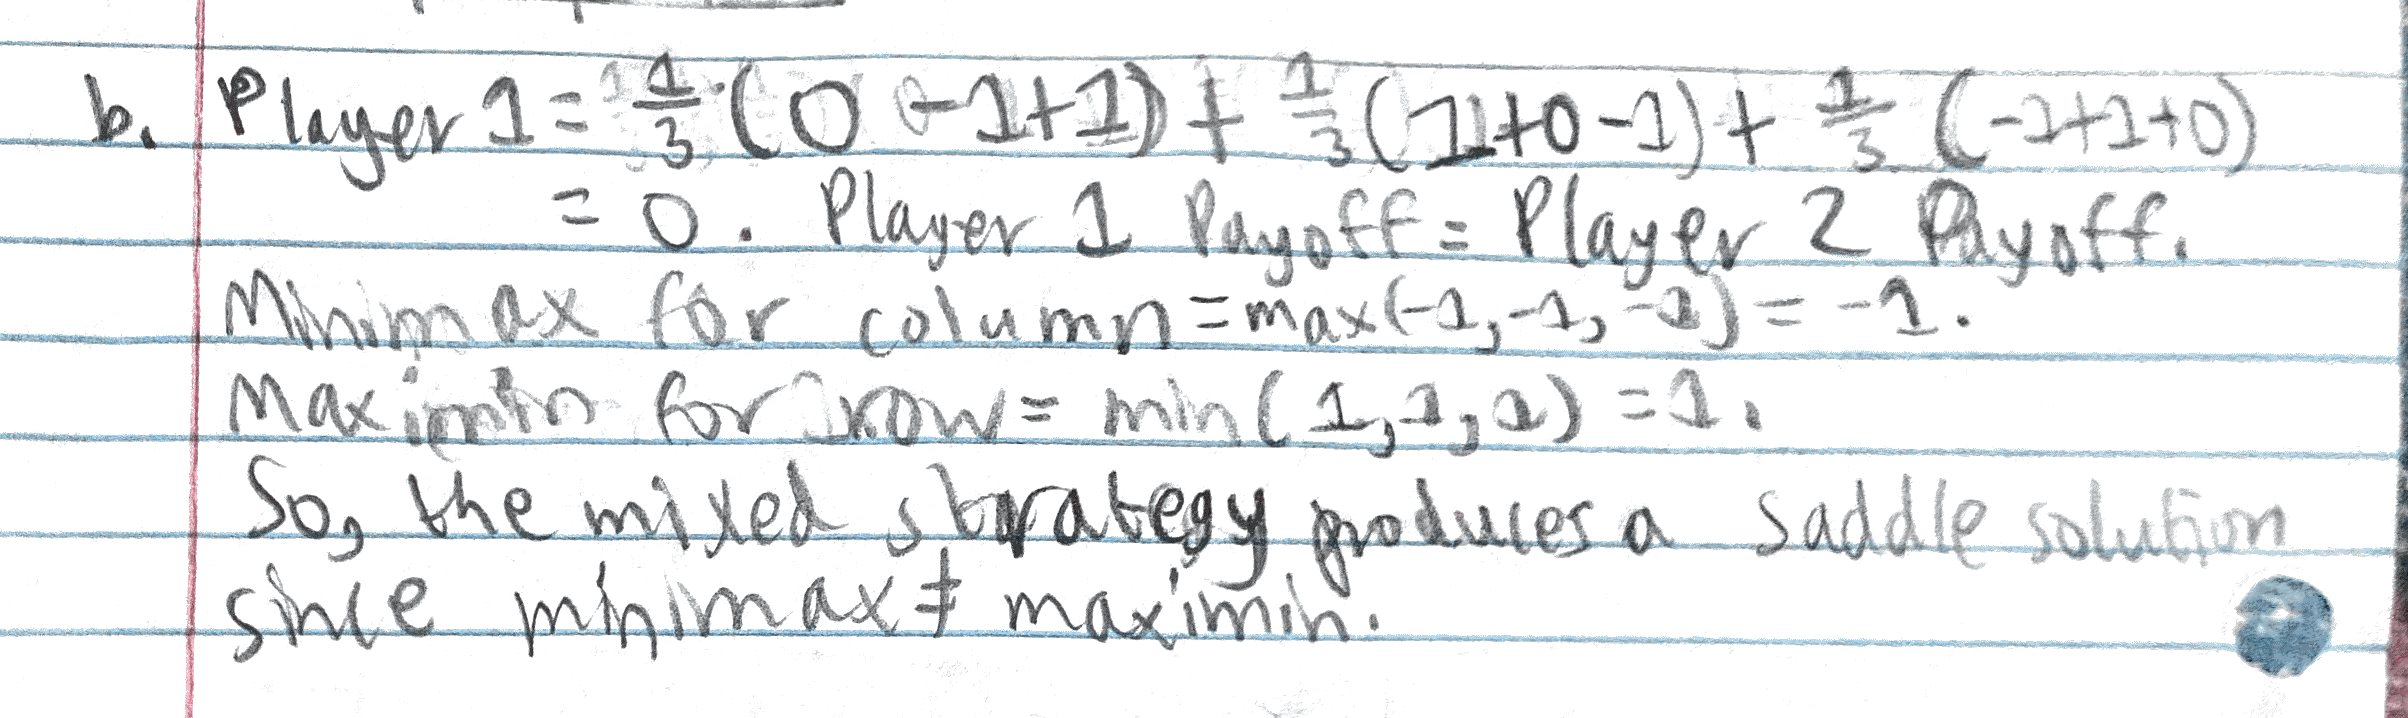 b. Player 1 = 1/3 (0 - 1 + 1) + 1/3 (1 + 0 - 1) + 1/3 (-1 + 1 + 0)
= 0. Player 1 Payoff = Player 2 Payoff.
Minimax for column = max(-1, -1, -1) = -1.
Maximin for row = min(1, 1, 1) = 1.
So, the mixed strategy produces a saddle solution
since minimax ≠ maximin.